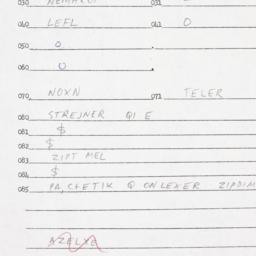 040 LEFL 041 O
050 O
060 O
070 NOXN 071 TELER
080 STREJNER QI E
081 $
082 $
083 ZIPT MEL
084 $
085 PA, CHETIK Q ONLEXER ZIPDIM
AZELXE